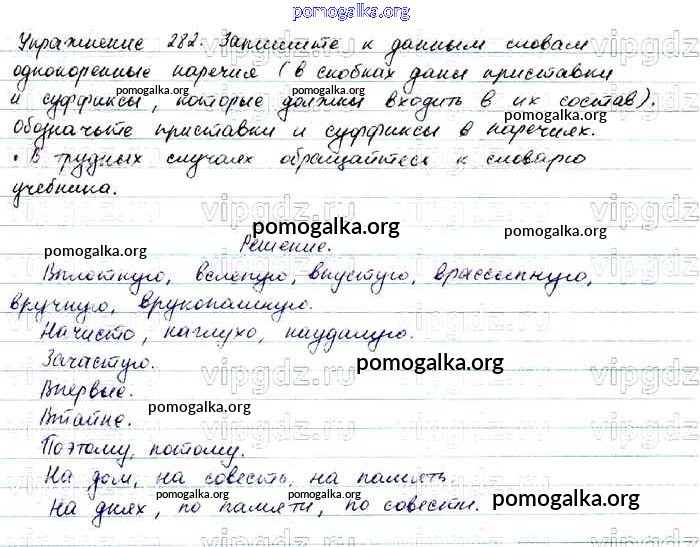 pomogalka.org
Упражнение 282. Запишите к данным словам
однокоренные наречия (в скобках даны приставки
и суффиксы, которые должны входить в их состав).
Обозначьте приставки и суффиксы в наречиях.
• В трудных случаях обращайтесь к словарю
учебника.
Решение.
Вплотную, вслепую, впустую, врассыпную,
вручную, врукопашную.
Начисто, наглухо, наудалую.
Зачастую.
Впервые.
Втайне.
Поэтому, потому.
На дом, на совесть, на память.
На днях, по памяти, по совести.
pomogalka.org
pomogalka.org
pomogalka.org
pomogalka.org
pomogalka.org
pomogalka.org
pomogalka.org
pomogalka.org
pomogalka.org
pomogalka.org
pomogalka.org
vipgdz.ru
vipgdz.ru
vipgdz.ru